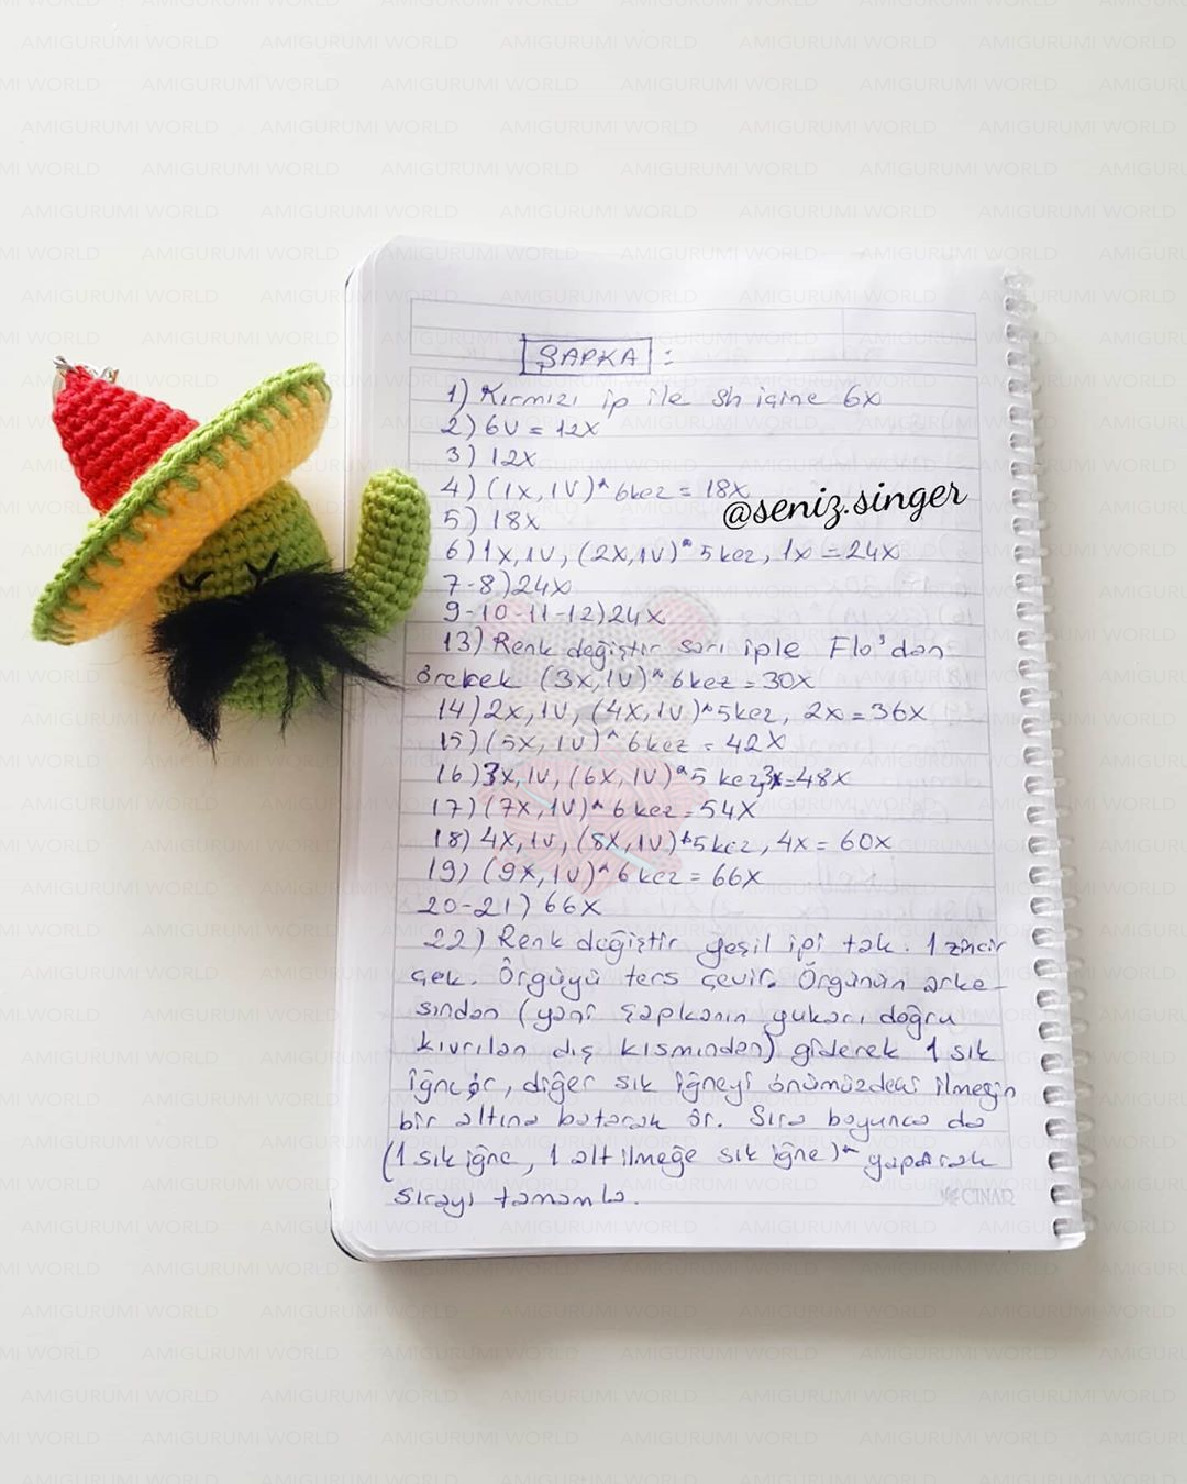 ŞAPKA :
1) Kırmızı ip ile sh içine 6x
2) 6v = 12x
3) 12x
4) (1x, 1v)* 6kez = 18x
@seniz.singer
5) 18x
6) 1x, 1v, (2x, 1v)* 5 kez, 1x = 24x
7-8) 24x
9-10-11-12) 24x
13) Renk değiştir sarı iple Flo'dan
örerek (3x, 1v)* 6kez = 30x
14) 2x, 1v, (4x, 1v)* 5kez, 2x = 36x
15) (5x, 1v)* 6kez = 42x
16) 3x, 1v, (6x, 1v)* 5 kez, 3x = 48x
17) (7x, 1v)* 6 kez = 54x
18) 4x, 1v, (8x, 1v)* 5kez, 4x = 60x
19) (9x, 1v)* 6 kez = 66x
20-21) 66x
22) Renk değiştir yeşil ipi tak. 1 zincir
çek. Örgüyü ters çevir. Örgünün arka-
sından (yani şapkanın yukarı doğru
kıvrılan dış kısmından) giderek 1 sık
iğne ör, diğer sık iğneyi önümüzdeki ilmeğin
bir altına batarak ör. Sıra boyunca da
(1 sık iğne, 1 alt ilmeğe sık iğne)* yaparak
sırayı tamamla.
ÇINAR
AMIGURUMI WORLD